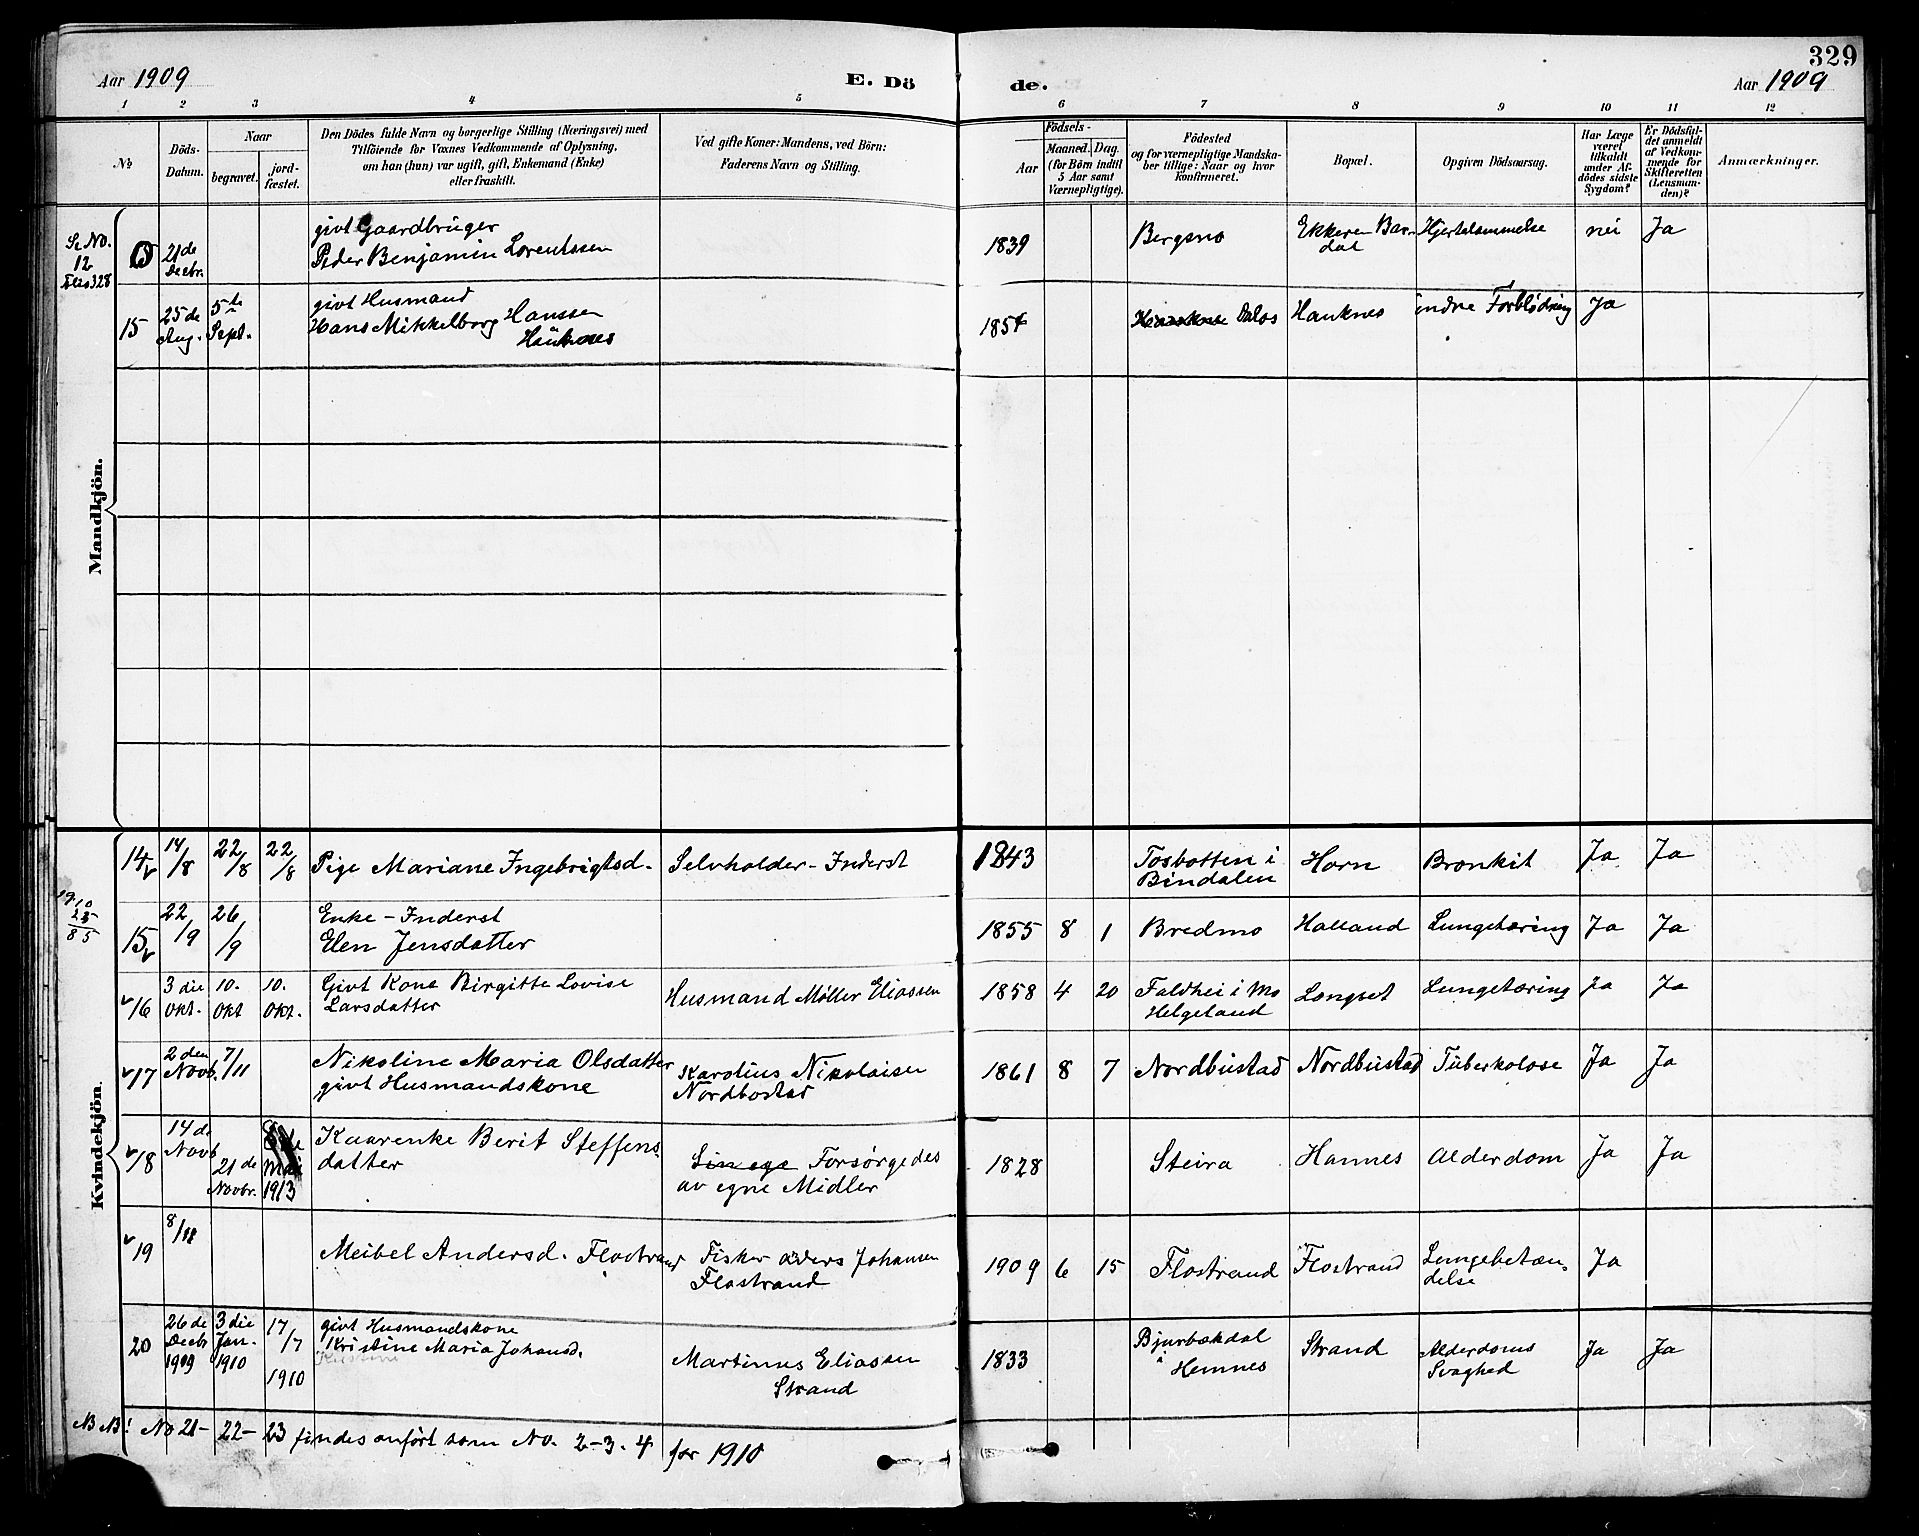 329
Aar 1909
E. Dö
de.
Aar 1909
1 2 3 4 5 6 7 8 9 10 11 12
№
Döds-
Datum.
Naar
begravet.
jord-
fæstet.
Den Dödes fulde Navn og borgerlige Stilling (Næringsvei) med
Tilföiende for Voxnes Vedkommende af Oplysning,
om han (hun) var ugift, gift, Enkemand (Enke)
eller fraskilt.
Ved gifte Koner: Mandens, ved Börn:
Faderens Navn og Stilling.
Födsels-
Aar
Maaned. Dag.
(for Börn indtil
5 Aar samt
Værnepligtige).
Födested
og for værnepligtige Mandska-
ber tillige: Naar og hvor
konfirmeret.
Bopæl.
Opgiven Dödsaarsag.
Har Læge
været
tilkaldt
under Af-
dödes sidste
Sygdom?
Er Dödsfal-
det anmeldt
af Vedkom-
mende for
Skifteretten
(Lensman-
den)?
Anmærkninger.
Mandkjön.
Se No.
12
328
21de
Decbr.
givt Gaardbruger
Peder Benjamin Lorentssen
1839
Bergsmo
Ekkeren Bar-
dal
Hjertelammelse
nei
Ja
15
25de
Aug.
5te
Sept.
givt Husmand
Hans Mikkelborg Hanssen
Hauknes
Dalos
Hauknes
indre Forblødning
Ja
Kvindekjön.
14
14/8
22/8
22/8
Pige Mariane Ingebrigtsd.
Selvholder - Inderst
1843
Tosbotten i
Bindalen
Horn
Bronkit
Ja
Ja
1910
85
15
22/9
26/9
Enke - Inderst
Elen Jensdatter
1855
8
1
Bredmo
Halland
Lungetæring
Ja
Ja
16
3die
Okt.
10.
Okt
10.
Okt.
Givt Kone Birgitte Lovise
Larsdatter
Husmand Møller Eliassen
1858
4
20
Faldhei i Mo
Helgeland
Langset
Lungetæring
Ja
Ja
17
2den
Novb.
7/11
Nikoline Maria Olsdatter
givt Husmandskone
Karolius Nikolaisen
Nordbostad
1861
8
7
Nordbustad
Nordbustad
Tuberkolose
Ja
Ja
18
14de
Novb
21de
Novbr.
Mai
1913
Kaarenke Berit Steffens-
datter
Sin egen Forsørgedes
av egne Midler
1828
Steira
Hannes
Alderdom
Ja
Ja
19
8/11
Meibel Andersd. Flostrand
Fisker Anders Johansen
Flostrand
1909
6
15
Flostrand
Flostrand
Lungebetæn-
delse
Ja
20
26de
Decbr
1909
3die
Jan.
1910
17/7
1910
givt Husmandskone
Kristine Maria Johansd.
Martinus Eliassen
Strand
1833
Bjurbækdal
i
Hemnes
Strand
Alderdoms
Svaghed
Ja
Ja
NB! No 21- 22- 23 findes anført som No. 2-3.4 for 1910